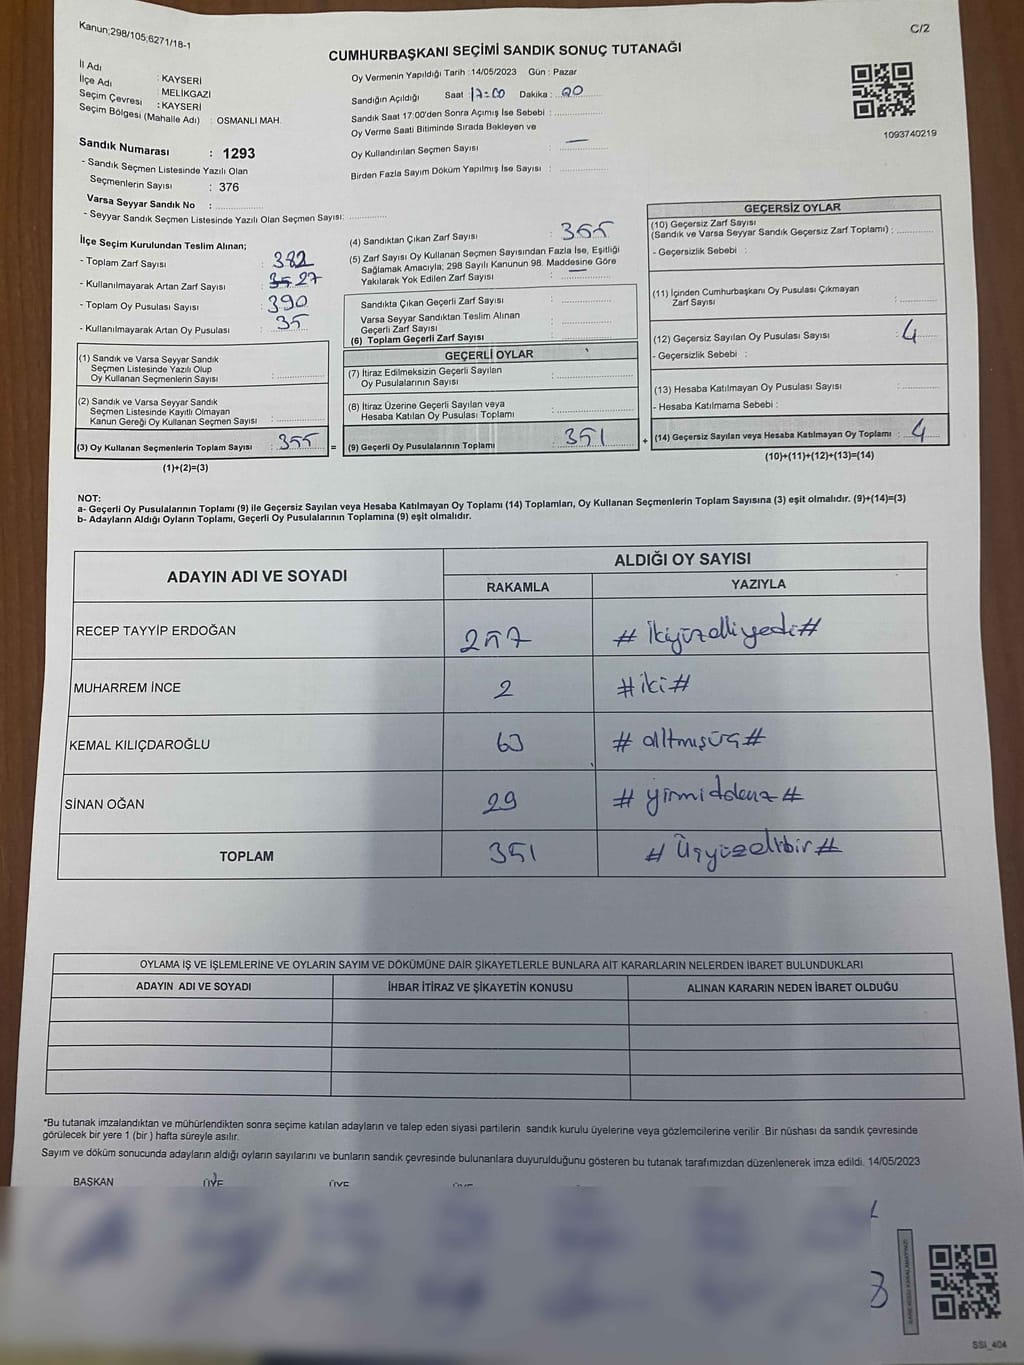 Kanun;298/105;6271/18-1
C/2
CUMHURBAŞKANI SEÇİMİ SANDIK SONUÇ TUTANAĞI
İl Adı : KAYSERİ
İlçe Adı : MELİKGAZİ
Seçim Çevresi : KAYSERİ
Seçim Bölgesi (Mahalle Adı) : OSMANLI MAH.
Oy Vermenin Yapıldığı Tarih : 14/05/2023 Gün : Pazar
Sandığın Açıldığı Saat : 17:00 Dakika : 20
Sandık Saat 17:00'den Sonra Açımış İse Sebebi :
Oy Verme Saati Bitiminde Sırada Bekleyen ve
Oy Kullandırılan Seçmen Sayısı : —
Birden Fazla Sayım Döküm Yapılmış İse Sayısı :
1093740219
Sandık Numarası : 1293
- Sandık Seçmen Listesinde Yazılı Olan
Seçmenlerin Sayısı : 376
Varsa Seyyar Sandık No :
- Seyyar Sandık Seçmen Listesinde Yazılı Olan Seçmen Sayısı:
İlçe Seçim Kurulundan Teslim Alınan;
- Toplam Zarf Sayısı : 382
- Kullanılmayarak Artan Zarf Sayısı : 27
- Toplam Oy Pusulası Sayısı : 390
- Kullanılmayarak Artan Oy Pusulası : 35
(1) Sandık ve Varsa Seyyar Sandık
Seçmen Listesinde Yazılı Olup
Oy Kullanan Seçmenlerin Sayısı :
(2) Sandık ve Varsa Seyyar Sandık
Seçmen Listesinde Kayıtlı Olmayan
Kanun Gereği Oy Kullanan Seçmen Sayısı :
(3) Oy Kullanan Seçmenlerin Toplam Sayısı : 355 =
(1)+(2)=(3)
(4) Sandıktan Çıkan Zarf Sayısı : 355
(5) Zarf Sayısı Oy Kullanan Seçmen Sayısından Fazla İse, Eşitliği
Sağlamak Amacıyla; 298 Sayılı Kanunun 98. Maddesine Göre
Yakılarak Yok Edilen Zarf Sayısı : —
Sandıkta Çıkan Geçerli Zarf Sayısı :
Varsa Seyyar Sandıktan Teslim Alınan
Geçerli Zarf Sayısı :
(6) Toplam Geçerli Zarf Sayısı :
GEÇERLİ OYLAR
(7) İtiraz Edilmeksizin Geçerli Sayılan
Oy Pusulalarının Sayısı :
(8) İtiraz Üzerine Geçerli Sayılan veya
Hesaba Katılan Oy Pusulası Toplamı :
(9) Geçerli Oy Pusulalarının Toplamı : 351 +
GEÇERSİZ OYLAR
(10) Geçersiz Zarf Sayısı
(Sandık ve Varsa Seyyar Sandık Geçersiz Zarf Toplamı) :
- Geçersizlik Sebebi :
(11) İçinden Cumhurbaşkanı Oy Pusulası Çıkmayan
Zarf Sayısı :
(12) Geçersiz Sayılan Oy Pusulası Sayısı : 4
- Geçersizlik Sebebi :
(13) Hesaba Katılmayan Oy Pusulası Sayısı :
- Hesaba Katılmama Sebebi :
(14) Geçersiz Sayılan veya Hesaba Katılmayan Oy Toplamı : 4
(10)+(11)+(12)+(13)=(14)
NOT:
a- Geçerli Oy Pusulalarının Toplamı (9) ile Geçersiz Sayılan veya Hesaba Katılmayan Oy Toplamı (14) Toplamları, Oy Kullanan Seçmenlerin Toplam Sayısına (3) eşit olmalıdır. (9)+(14)=(3)
b- Adayların Aldığı Oyların Toplamı, Geçerli Oy Pusulalarının Toplamına (9) eşit olmalıdır.
ADAYIN ADI VE SOYADI
ALDIĞI OY SAYISI
RAKAMLA YAZIYLA
RECEP TAYYİP ERDOĞAN 257 # ikiyüzelliyedi #
MUHARREM İNCE 2 # iki #
KEMAL KILIÇDAROĞLU 63 # altmışüç #
SİNAN OĞAN 29 # yirmidokuz #
TOPLAM 351 # Üçyüzellibir #
OYLAMA İŞ VE İŞLEMLERİNE VE OYLARIN SAYIM VE DÖKÜMÜNE DAİR ŞİKAYETLERLE BUNLARA AİT KARARLARIN NELERDEN İBARET BULUNDUKLARI
ADAYIN ADI VE SOYADI İHBAR İTİRAZ VE ŞİKAYETİN KONUSU ALINAN KARARIN NEDEN İBARET OLDUĞU
*Bu tutanak imzalandıktan ve mühürlendikten sonra seçime katılan adayların ve talep eden siyasi partilerin sandık kurulu üyelerine veya gözlemcilerine verilir .Bir nüshası da sandık çevresinde
görülecek bir yere 1 (bir ) hafta süreyle asılır.
Sayım ve döküm sonucunda adayların aldığı oyların sayılarını ve bunların sandık çevresinde bulunanlara duyurulduğunu gösteren bu tutanak tarafımızdan düzenlenerek imza edildi. 14/05/2023
BAŞKAN ÜYE ÜYE
SSI_404